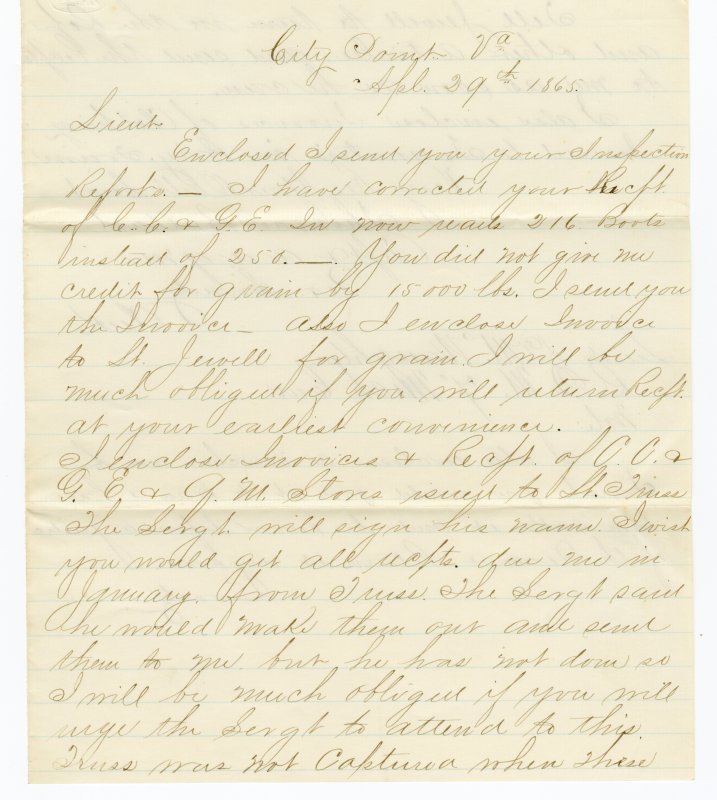 City Point Va
Apl. 29th 1865.
Lieut
Enclosed I send you your Inspection
Reports. — I have corrected your Recpt.
of C. C. & G. E. In now reads 216 Boots
instead of 250. — . You did not give me
credit for grain by 15000 lbs. I send you
the Invoice — also I enclose Invoice
to Lt. Jewell for grain. I will be
much obliged if you will return Recpt.
at your earliest convenience.
I enclose Invoices & Recpt. of C. C. &
G. E. & Q. M. Stores issued to Lt. Truss
The Sergt. will sign his name. I wish
you would get all recpts. due me in
January. from Truss. The Sergt said
he would make them out and send
them to me. but he has not done so
I will be much obliged if you will
urge the Sergt to attend to this.
Truss was not Captured when these